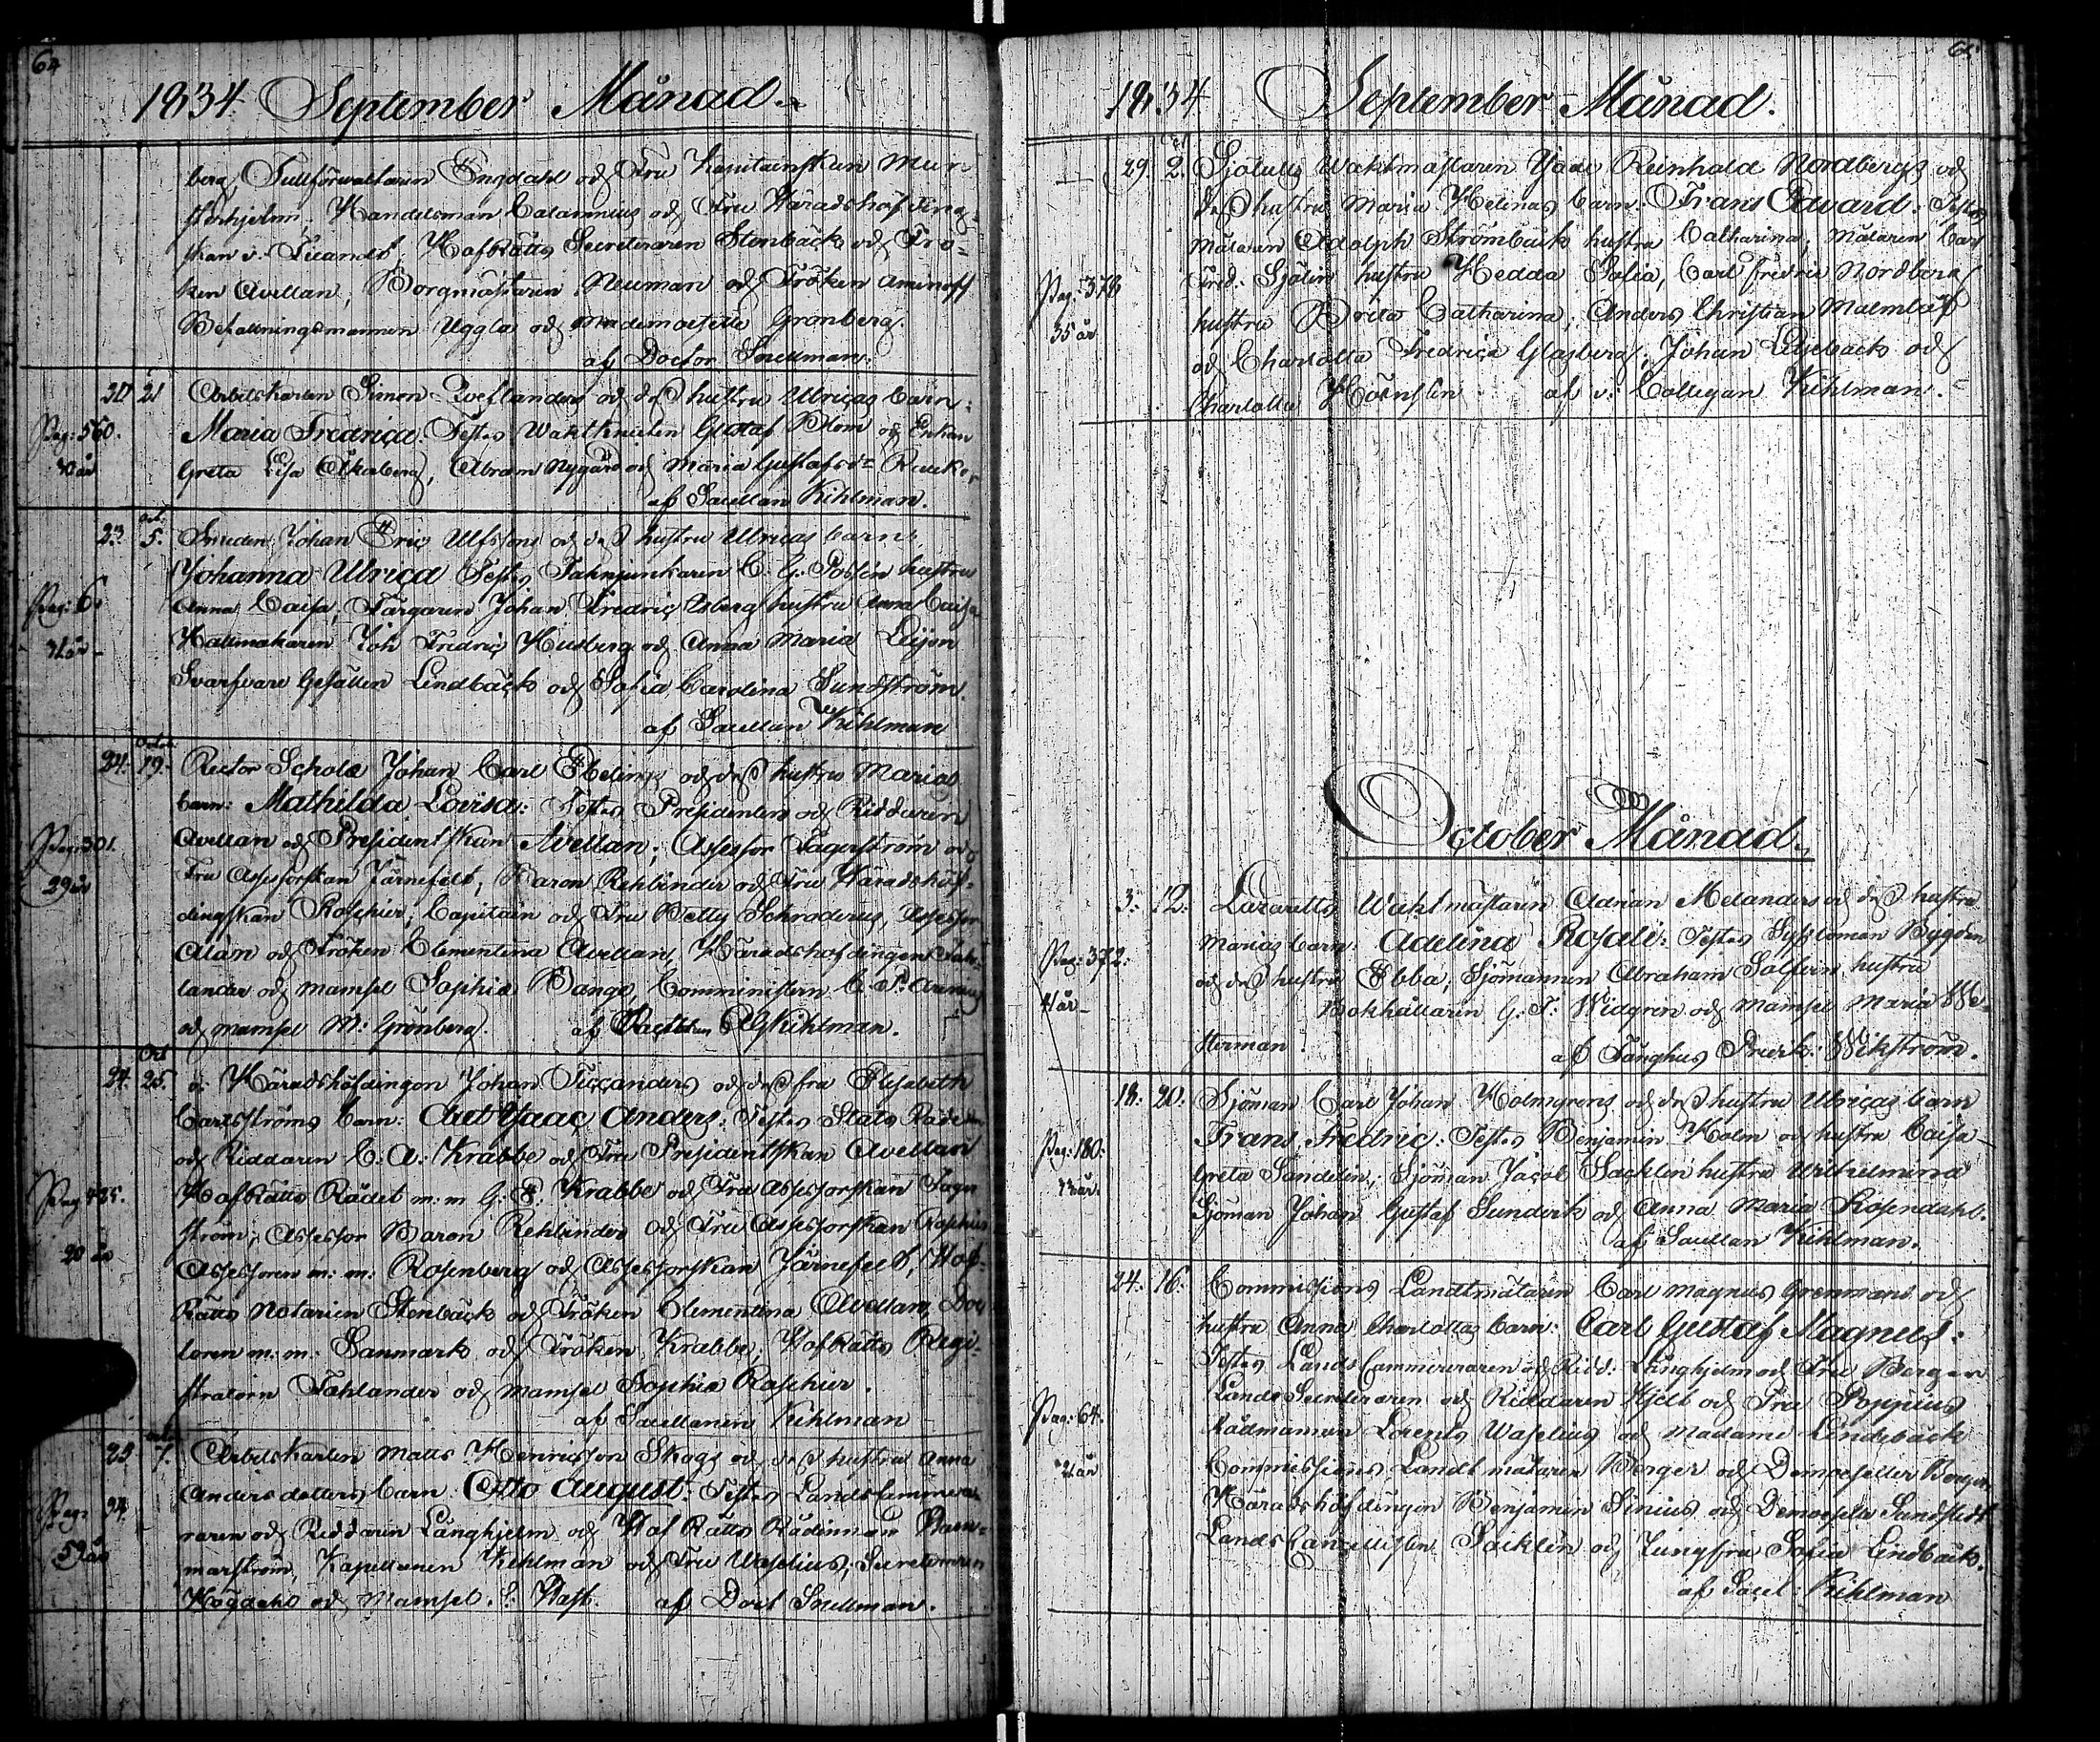 64
1834 September Månad.
berg, Tullförwaltaren Engdahl och Fru Kapitainskan Mun-
sterhjelm, Handelsman Calamnius och Fru Häradshöfding-
skan v. Ticandt, Hofrätts Secreteraren Stenbäck och Frö-
ken Avellan, Borgmästaren Neuman och Fröken Aminoff
Befallningsmannen Uggla och Mademoiselle Grönberg.
af Doctor Snellman.
20 21 Arbetskarlen Simon och dess hustru Ulricas barn:
Pag: 560. Maria Fredrica. Testes Waktknekten Gustaf Blom och Enkan
40 år Greta Lisa Åkerberg, Abram Nygård och Maria Gustafsdr
af Sacellan Kihlman.
Oct:
23. 5. Smeden Johan Eric Ulfssons och dess hustru Ulricas barn:
Johanna Ulrica Testes Fahnjunkaren C. G. hustru
Pag: 6 Anna Caisa, Färgaren Johan Fredric hustru Anna Caisa
år Hattmakaren Joh Fredric Husberg och Anna Maria Leijon
Svarfvare Gesällen Lindbäck och Sofia Carolina Sundström.
af Sacellan Kihlman
Octob:
24. 19. Rector Scholæ Johan Carl Ebelings och dess hustru Marias
barn: Mathilda Lovisa: Testes Presidenten och Riddaren
Pag: 301. Avellan och Presidentskan Avellan; Assessor Fagerström och
29 år Fru Assessorskan Järnefelt, Baron Rehbinder och Fru Häradshöf-
dingskan Roschier, Capitain och Fru Betty Schroderus, Assessor
Alan och Fröken Clementina Avellan, Häradshöfdingen Fah-
lander och Mamsel Sophia Bange, Comministern C. P.
och Mamsel M: Grönberg. af Kihlman.
Oct
24. 25. v. Häradshöfdingen Johan Ticcanders och dess fru Elisabeth
Carlsströms barn: Axel Isaac Anders: Testes Stats Rådet
och Riddaren C. A. Krabbe och Fru Presidentskan Avellan
Pag 425. HofRätts Rådet m: m G. F. Krabbe och Fru Assessorskan Fager
ström, Assessor Baron Rehbinder och Fru Assessorskan Roschier
20 år Assessoren m: m: Rosenberg och Assessorskan Järnefelt, Hof-
Rätts Notarien Stenbäck och Fröken Clementina Avellan, Doc
toren m: m: Sanmark och Fröken Krabbe, Hofrätts Regi-
stratorn Fahlander och Mamsel Sophia Roschier.
af Sacellanen Kihlman
Oct:
25 7. Arbetskarlen Matts Henricsson Skogs och dess hustru Anna
Andersdotters barn: Otto August: Testes LandsCammere
Pag: 94. raren och Riddaren Långhjelm och Hof Rätts Rådinnan
59 år marström, Kapellanen Kihlman och Fru Waselius, Secreteraren
Högdahl och Mamsel. S. Hast. af Doct Snellman.
65
1834 September Månad.
Oct
29. 2. Sjötulls Waktmästaren Isac Reinhold Nordbergs och
dess hustru Maria Helinas barn: Frans Edward: Testes
Målaren Adolph Strömbäck hustru Catharina, Målaren Carl
Pag: 378 Fred: Sjölin hustru Hedda Sofia, Carl Fredric Nordberg
35 år hustru Brita Catharina, Anders Christian Malmlöf
och Charlotta Fredrica Glasberg, Johan Liljebäck och
Charlotta Hörnstén af v: Collegan Kihlman.
October Månad.
3. 12. Lazaretts Waktmästaren Adrian Melanders och dess hustru
Marias barn: Adelina Rosali: Testes Syssloman Bygdén
Pag: 372: och dess hustru Ebba, Sjömannen Abraham Salfvin hustru
41 år Bokhållaren G. F. Widgren och Mamsel Maria We-
sterman. af Fänghus Predik: Wikström.
18. 20. Sjöman Carl Johan Holmgrens och dess hustru Ulricas barn
Frans Fredric: Testes Benjamin Holm och hustru Caisa
Pag: 180: Greta Sandelin, Sjöman Jacob Sacklén hustru Wilhelmina
år. Sjöman Johan Gustaf Sundvik och Anna Maria Rosendahl.
af Sacellan Kihlman.
24. 16. Commissions Landtmätaren Carl Magnus Grenmans och
hustru Anna Charlottas barn: Carl Gustaf Magnus:
Testes LandsCammereraren och Ridd: Långhjelm och Fru Berger
Lands Secreteraren och Riddaren Hjelt och Fru Poppius
Pag: 64. Rådmannen Lorents Waselius och Madame Lindebäck
21 år Commissions Landtmätaren Berger och Demoiselle Berger,
Häradshöfdingen Benjamin Sinius och Demoiselle Sundstedt
LandsCancellisten Sacklén och Jungfru Sofia Lindbäck.
af Sacel: Kihlman